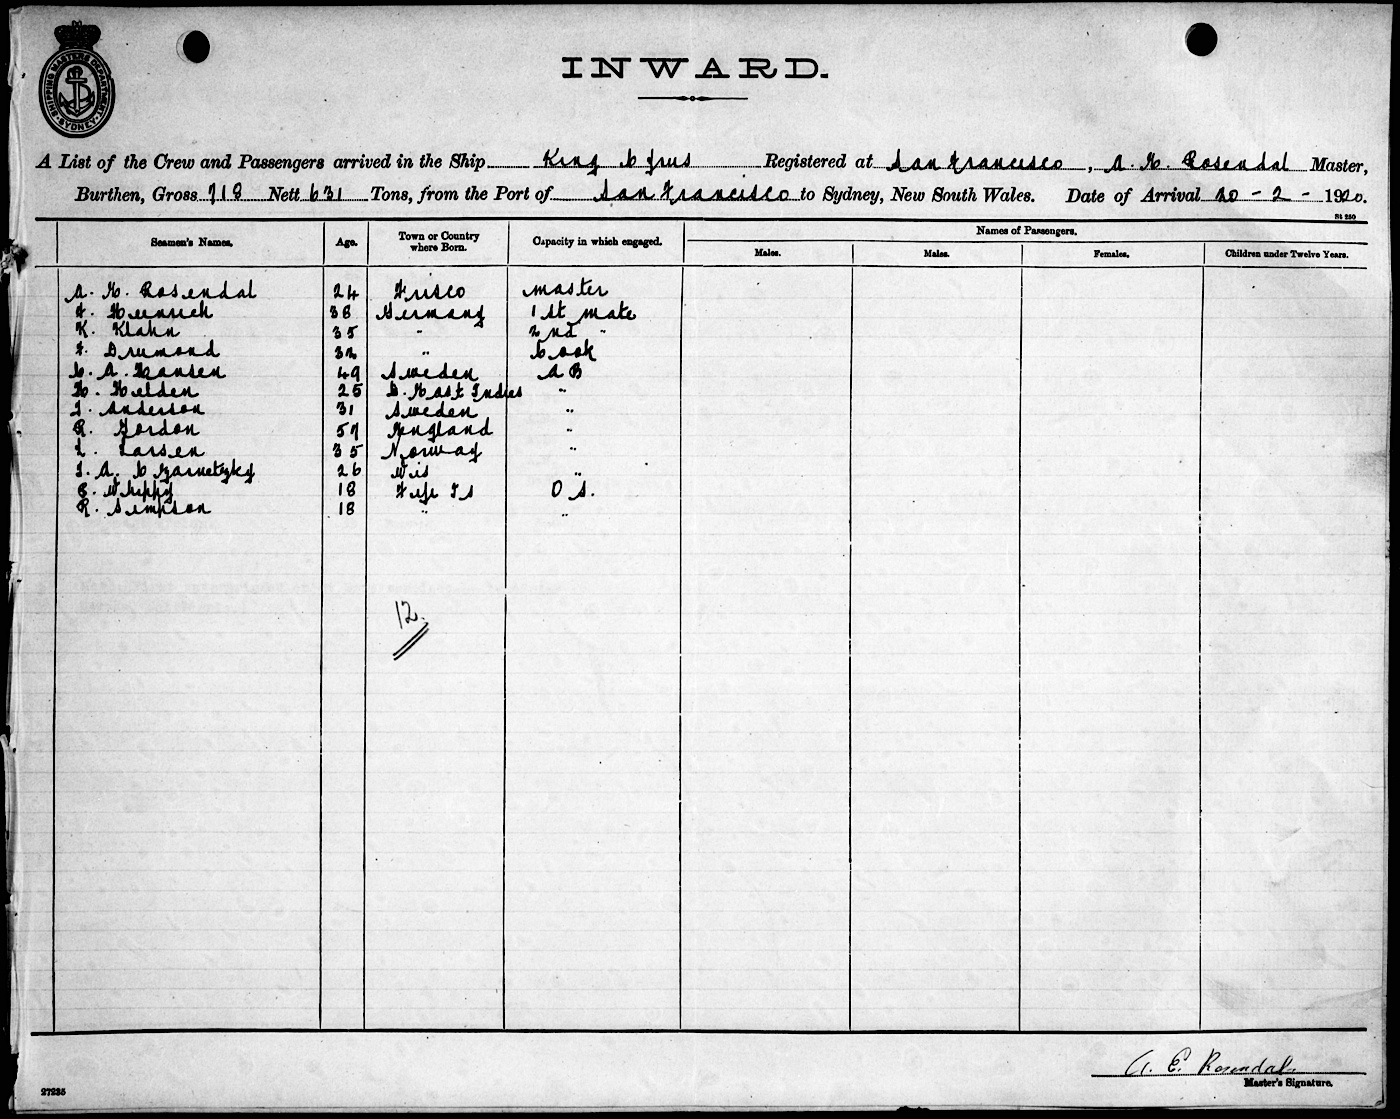 SHIPPING MASTERS DEPARTMENT
SYDNEY
INWARD.
A List of the Crew and Passengers arrived in the Ship King Cyrus Registered at San Francisco, A. E. Rosendal Master,
Burthen, Gross 718 Nett 631 Tons, from the Port of San Francisco to Sydney, New South Wales. Date of Arrival 20 - 2 - 1920.
St 250
Seamen's Names. Age. Town or Country where Born. Capacity in which engaged. Names of Passengers.
Males. Males. Females. Children under Twelve Years.
A. E. Rosendal 24 Frisco master
F. Heinrich 38 Germany 1st mate
K. Klahn 35 " 2nd "
F. Drumond 32 " Cook
C. A. Hansen 49 Sweden A B
H. Helden 25 D. East Indies "
I. Anderson 31 Sweden "
R. Gordon 57 England "
L. Larsen 35 Norway "
I. A. Czarnetzky 26 Wis "
C. Whippy 18 Fiji Is O S.
R. Simpson 18 " "
12.
A. E. Rosendal.
Master's Signature.
27235